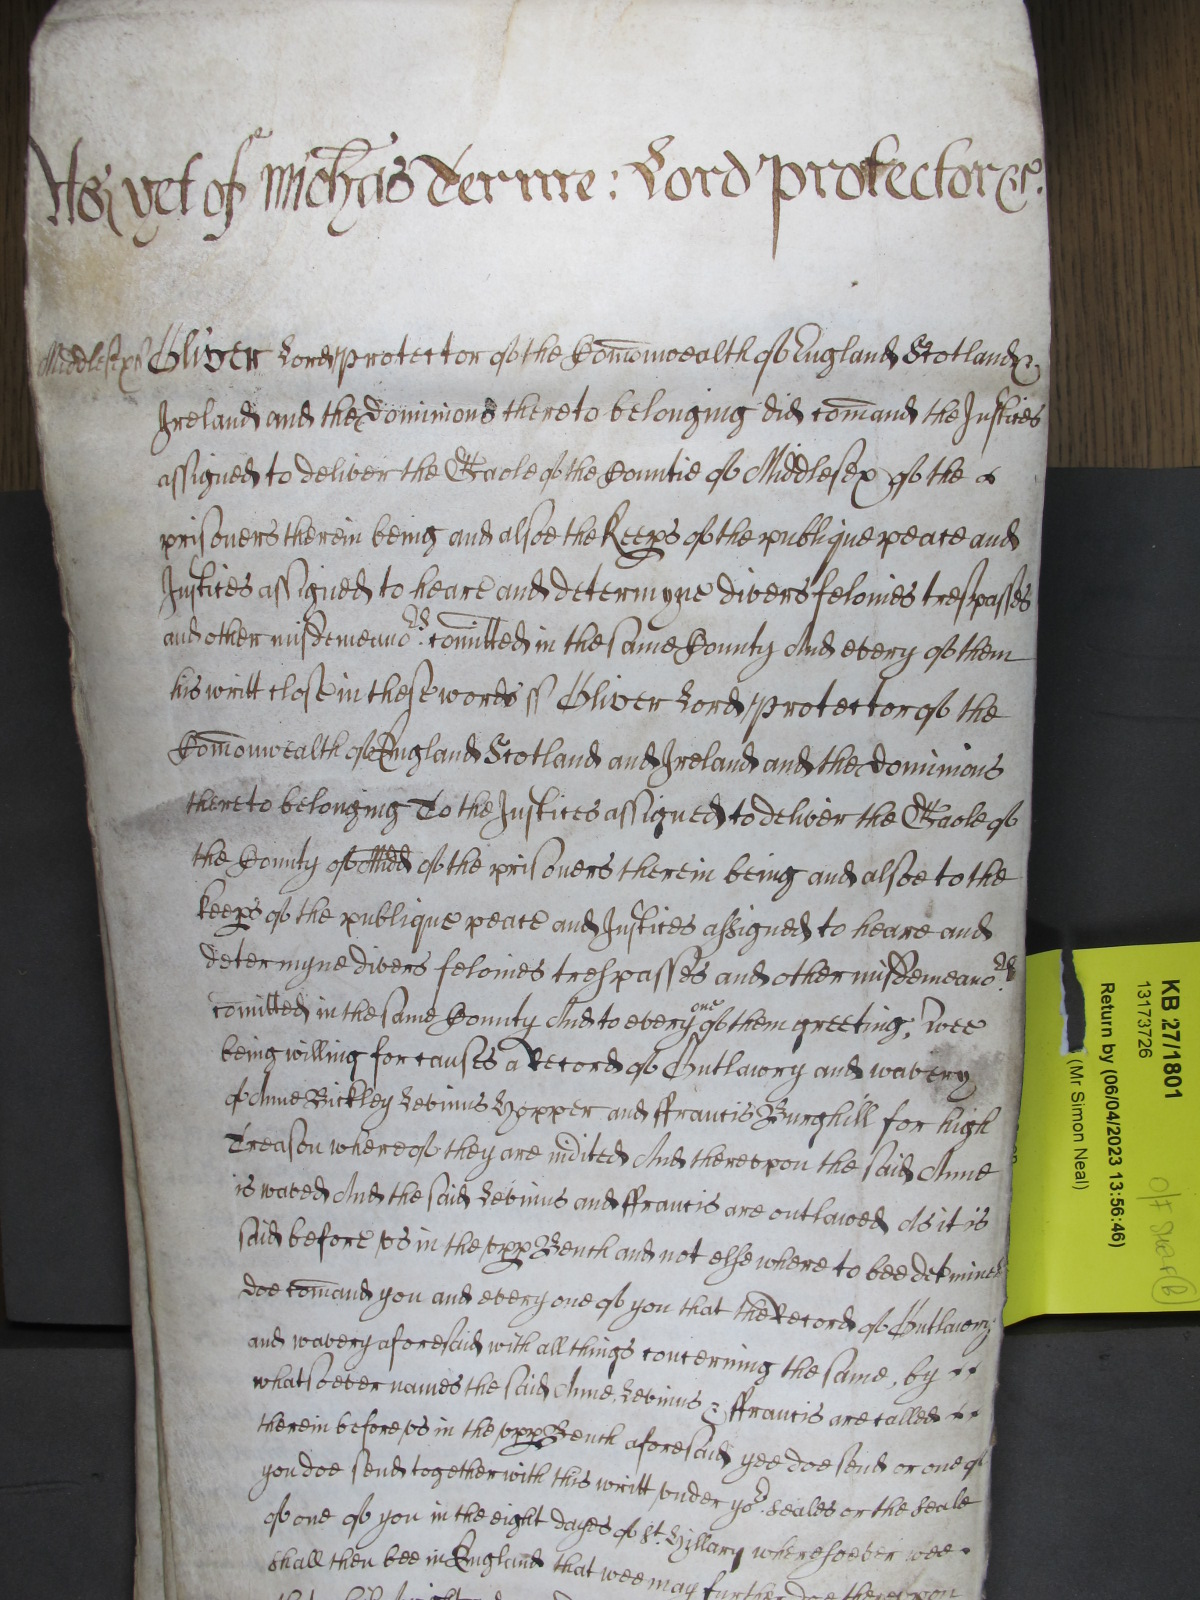 As yet of Mich̄as Terme: Lord Protector &c.
Middlesex Oliver Lord Protector of the Com̄onwealth of England Scotland
Ireland and the dominions thereto belonging did com̄and the Justices
assigned to deliver the Gaole of the Countie of Middlesex of the
prisoners therein being and alsoe the Keeps of the publique peace and
Justices assigned to heare and determyne divers felonies trespasses
and other misdemeano.rs com̄itted in the same County And every of them
his writt close in these words ss Oliver Lord Protector of the
Com̄onwealth of England Scotland and Ireland and the dominions
thereto belonging To the Justices assigned to deliver the Gaole of
the County of Midd of the prisoners therein being and alsoe to the
keeps of the publique peace and Justices assigned to heare and
determyne divers felonies trespasses and other misdemeano.rs
com̄itted in the same County And to every one of them greeting; Wee
being willing for causes a Record of Outlawry and wavery
of Anne Bickley Levinus Hopper and ffrancis Burghill for high
Treason whereof they are indited And thereupon the said Anne
is waved And the said Levinus and ffrancis are outlawed As it is
said before vs in the vpp Bench and not elsewhere to bee determined
doe com̄and you and every one of you that the Record of Outlawry
and wavery aforesaid with all things concerning the same, by
whatsoever names the said Anne, Levinus & ffrancis are called
therein before vs in the vpp Bench aforesaid yee doe send or one of
you doe send together with this writt vnder yo.r seales or the seale
of one of you in the eight dayes of St. Hillary wheresoever wee
shall then bee in England that wee may further doe thereupon
KB 27/1801
13173726
Return by (06/04/2023 13:56:46)
(Mr Simon Neal)